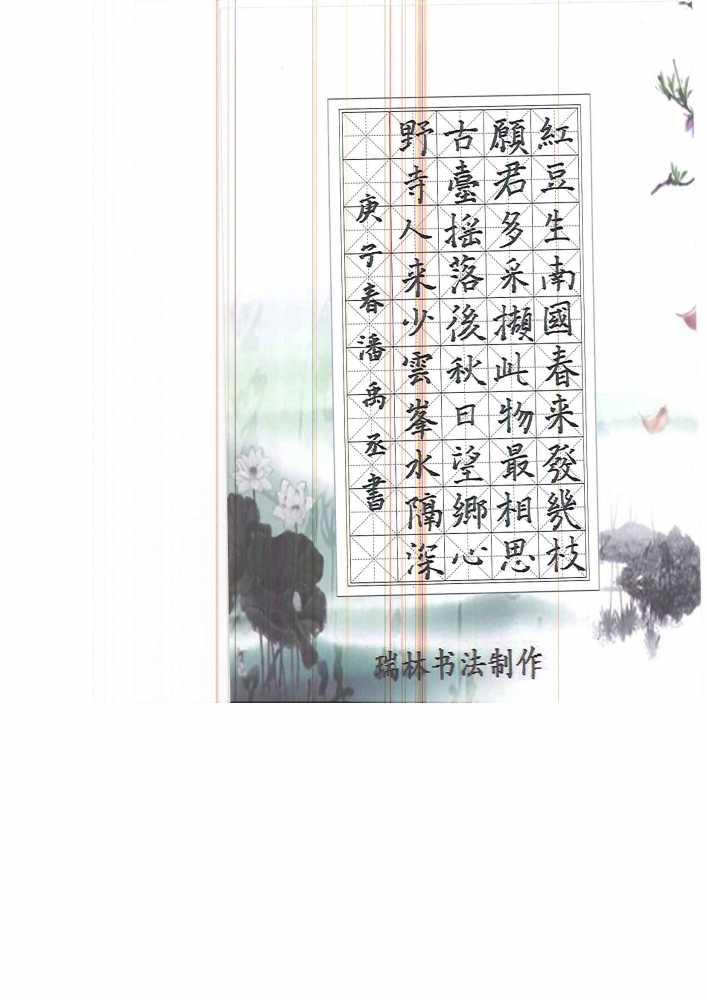 紅豆生南國春来發幾枝
願君多采擷此物最相思
古臺摇落後秋日望鄉心
野寺人来少雲峯水隔深
庚子春潘禹丞書
瑞林书法制作